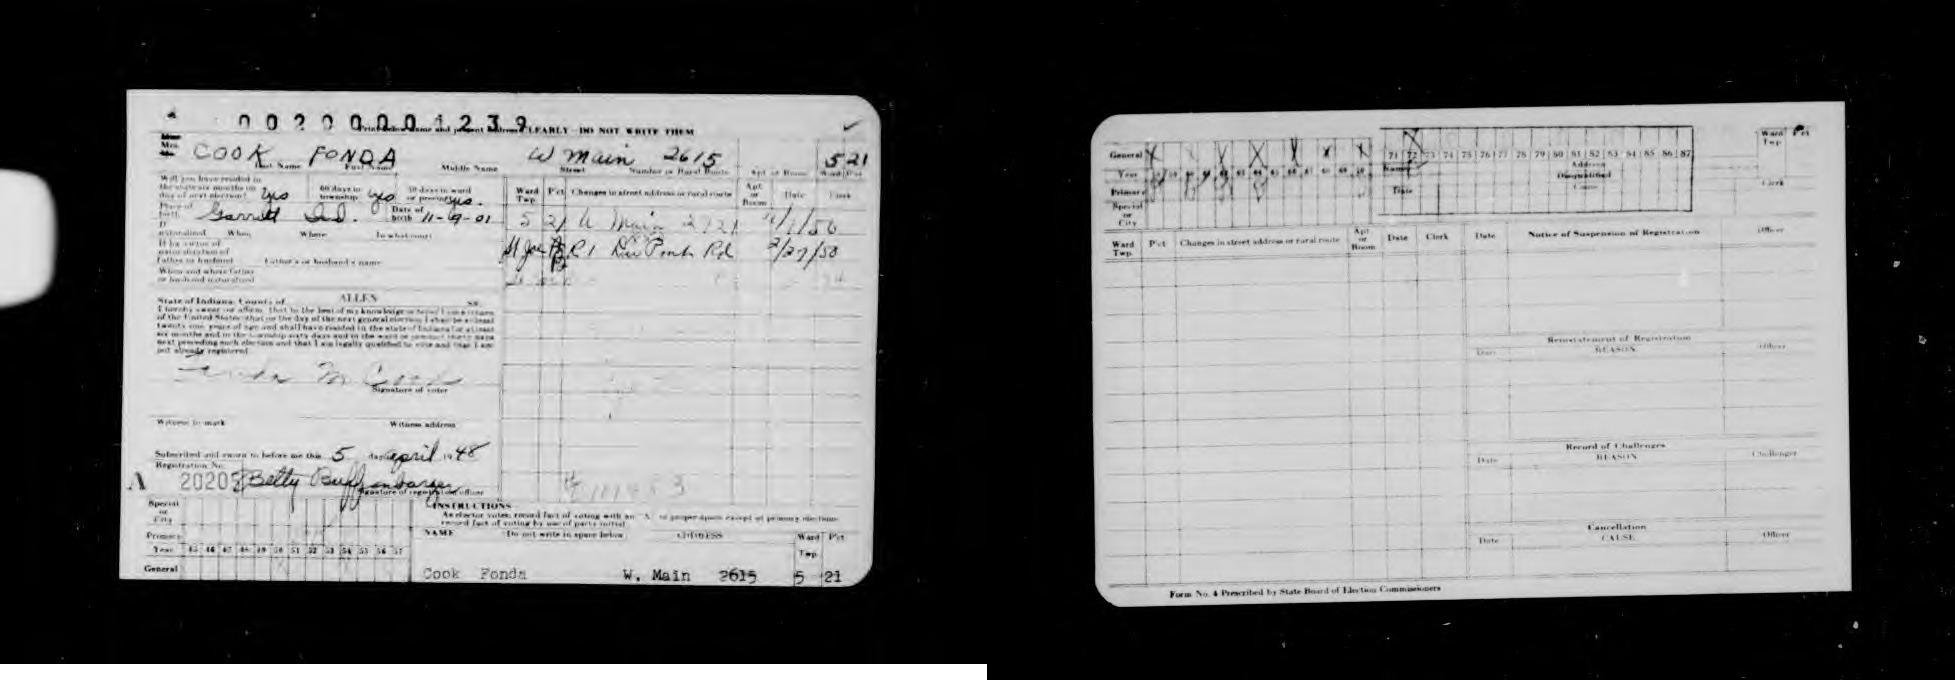 0020001239
Print below name and present address CLEARLY—DO NOT WRITE THEM
Mrs.
COOK FONDA W Main 2615 5 21
Last Name First Name Middle Name Street Number or Rural Route Apt or Room Ward Pct
Will you have resided in
the state six months on
day of next election? yes
60 days in
township yes
30 days in ward
or precinct yes.
Place of
birth Garrett Ind.
Date of
birth
If
naturalized When Where In what court
If by virtue of
naturalization of
father or husband Father's or husband's name
When and where father
or husband naturalized
Ward
Twp. Pct Changes in street address or rural route Apt
or
Room Date Clerk
5 21 W Main 2721
St Joe R 1 Rd 2/27/58
State of Indiana, County of ALLEN SS:
I hereby swear (or affirm) that to the best of my knowledge or belief I am a citizen
of the United States; that on the day of the next general election I shall be at least
twenty one years of age and shall have resided in the state of Indiana for at least
six months and in the township sixty days and in the ward or precinct thirty days
next preceding such election and that I am legally qualified to vote and that I am
not already registered.
M Cook
Signature of voter
Witness to mark Witness address
Subscribed and sworn to before me this 5 day April 1948
Registration No.
A 20205 Betty Buffenbarger
Signature of registration officer
Special
or
City
Primary
Year 45 46 47 48 49 50 51 52 53 54 55 56 57
General
INSTRUCTIONS
As elector votes, record fact of voting with an "X" in proper space except at primary elections
record fact of voting by use of party initial
NAME (Do not write in space below) ADDRESS Ward
Twp. Pct
Cook Fonda W. Main 2615 5 21
General
Year
Primary
Special
or
City
71 72 73 74 75 76 77 78 79 80 81 82 83 84 85 86 87
Name
Date
Address
Disqualified
Cause
Ward
Twp Pct
Clerk
Ward
Twp. Pct Changes in street address or rural route Apt
or
Room Date Clerk
Date Notice of Suspension of Registration Officer
Reinstatement of Registration
Date REASON Officer
Record of Challenges
Date REASON Challenger
Cancellation
Date CAUSE Officer
Form No. 4 Prescribed by State Board of Election Commissioners